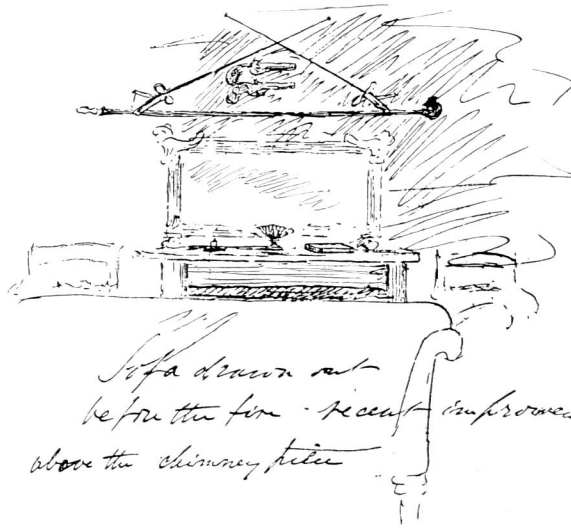 Sofa drawn out
before the fire - recent improvem
above the chimney piece